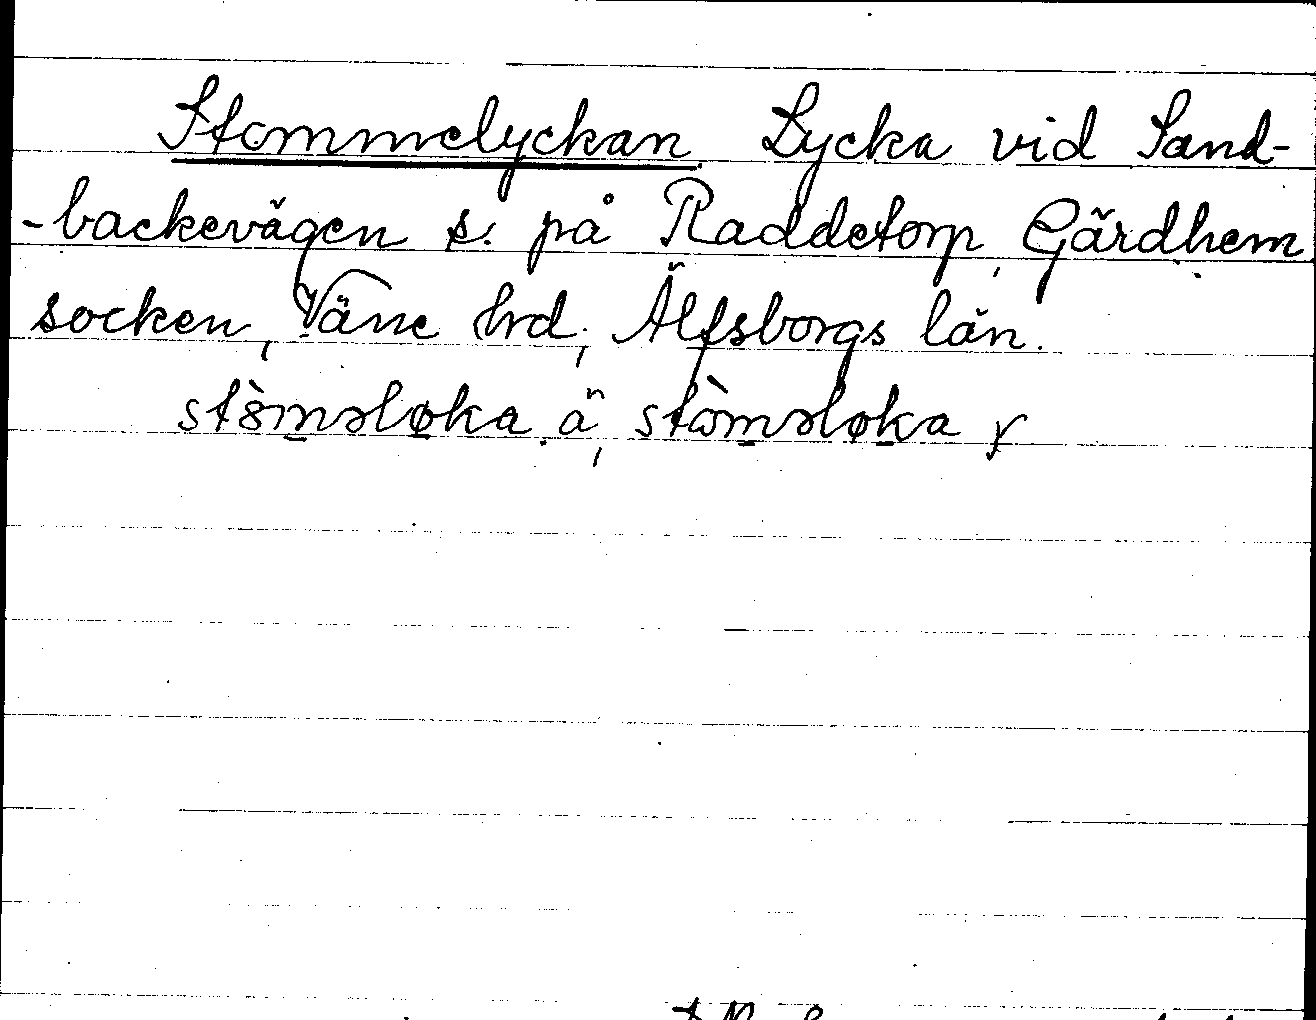 Stommelyckan. Lycka vid Sand-
-backevägen s. på Raddetorp, Gärdhem
socken, Väne hrd, Älfsborgs län.
stòməløka ä, stòməløka y